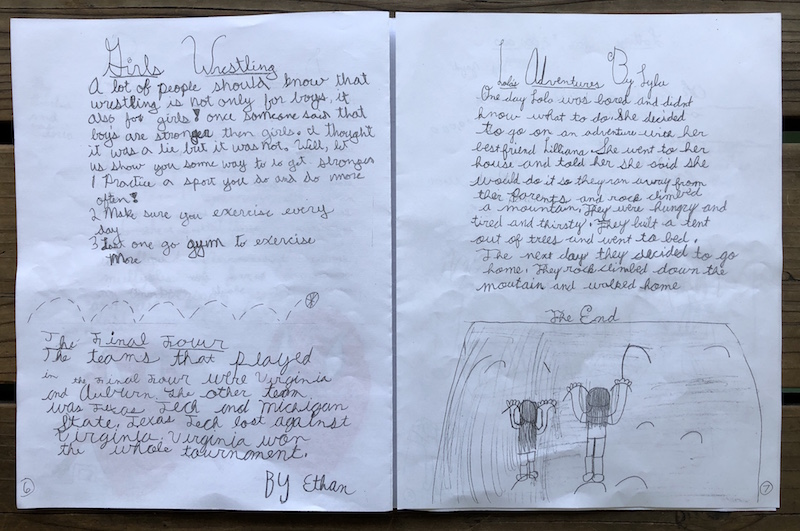 Girls Wrestling
A lot of people should know that
wrestling is not only for boys, it
also for girls! once someone said that
boys are stronger then girls. I thought
it was a lie but it was not. Well, let
us show you some way to to get stronger
1 Practice a sport you do and do more
often!
2 Make sure you exercise every
day
3 last one go gym to exercise
More
The Final Four
The teams that played
in the Final Four were Virginia
and Auburn. The other team
was Texas Tech and Michigan
State. Texas Tech lost against
Virginia. Virginia won
the whole tournament.
BY Ethan
6
Lola's Adventures By Lylu
One day Lola was bored and didnt
know what to do. She decided
to go on an adventure with her
best friend Lilliana. She went to her
house and told her she said she
would do it so they ran away from
ther Parents and rock climbed
a mountain. They were hungry and
tired and thirsty. They bilt a tent
out of trees and went to bed.
The next day they decided to go
home. They rock climbed down the
moutain and walked home
The End
7